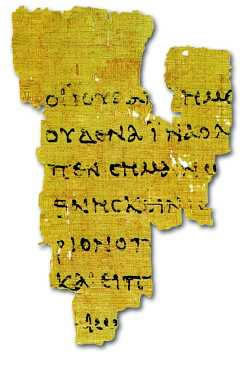 ΟΙ ΙΟΥΔΑΙ ΗΜΕ
ΟΥΔΕΝΑ ΙΝΑ Ο Λ
ΠΕΝ CΗΜΑΙΝΩ
ΘΝΗCΚΕΙΝ Ι
ΡΙΟΝ Ο Π
ΚΑΙ ΕΙΠ
ΑΙΩ